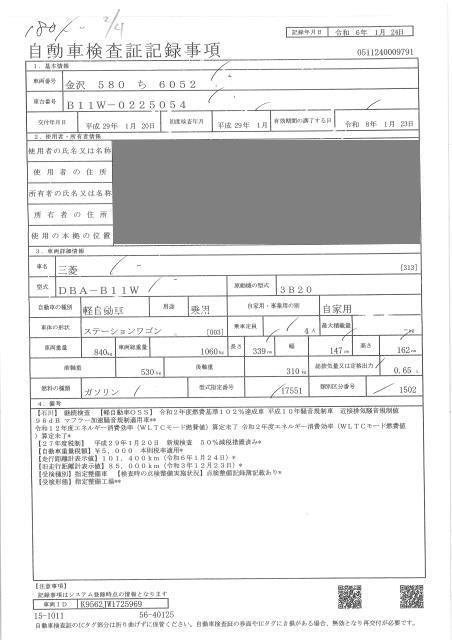 180 2/4
記録年月日 令和 6年 1月 24日
自動車検査証記録事項
0511240009791
1. 基本情報
車両番号 金沢 580 ち 6052
車台番号 B11W-0225054
交付年月日 平成 29年 1月 20日 初度検査年月 平成 29年 1月 有効期間の満了する日 令和 8年 1月 23日
2. 使用者・所有者情報
使用者の氏名又は名称
使用者の住所
所有者の氏名又は名称
所有者の住所
使用の本拠の位置
3. 車両詳細情報
車名 三菱 [313]
型式 DBA-B11W 原動機の型式 3B20
自動車の種別 軽自動車 用途 乗用 自家用・事業用の別 自家用
車体の形状 ステーションワゴン [003] 乗車定員 4人 最大積載量 -kg
車両重量 840kg 車両総重量 1060kg 長さ 339cm 幅 147cm 高さ 162cm
前軸重 530kg 後軸重 310kg 総排気量又は定格出力 0.65 L
燃料の種類 ガソリン 型式指定番号 17551 類別区分番号 1502
4. 備考
【石川】 継続検査 【軽自動車OSS】 令和2年度燃費基準102%達成車 平成10年騒音規制車 近接排気騒音規制値
96dB マフラー加速騒音規制適用車**
令和12年度エネルギー消費効率(WLTCモード燃費値)算定未了 令和2年度エネルギー消費効率(WLTCモード燃費値
)算定未了*
【27年度税制】 平成29年1月20日 新規検査 50%減税措置済み*
【自動車重量税額】¥5,000 本則税率適用*
【走行距離計表示値】101,400km(令和6年1月24日)*
【旧走行距離計表示値】85,000km(令和3年12月23日)*
【受検種別】指定整備車 【検査時の点検整備実施状況】点検整備記録簿記載あり*
【受検形態】指定整備工場**
【注意事項】
記録事項はシステム登録時点の情報となります
車両ID K9562JW1725969
15-1011 56-40125
自動車検査証のICタグ部分は折り曲げずに保管ください。自動車検査証の券面やICタグにき損がある場合、無効となり再交付が必要です。